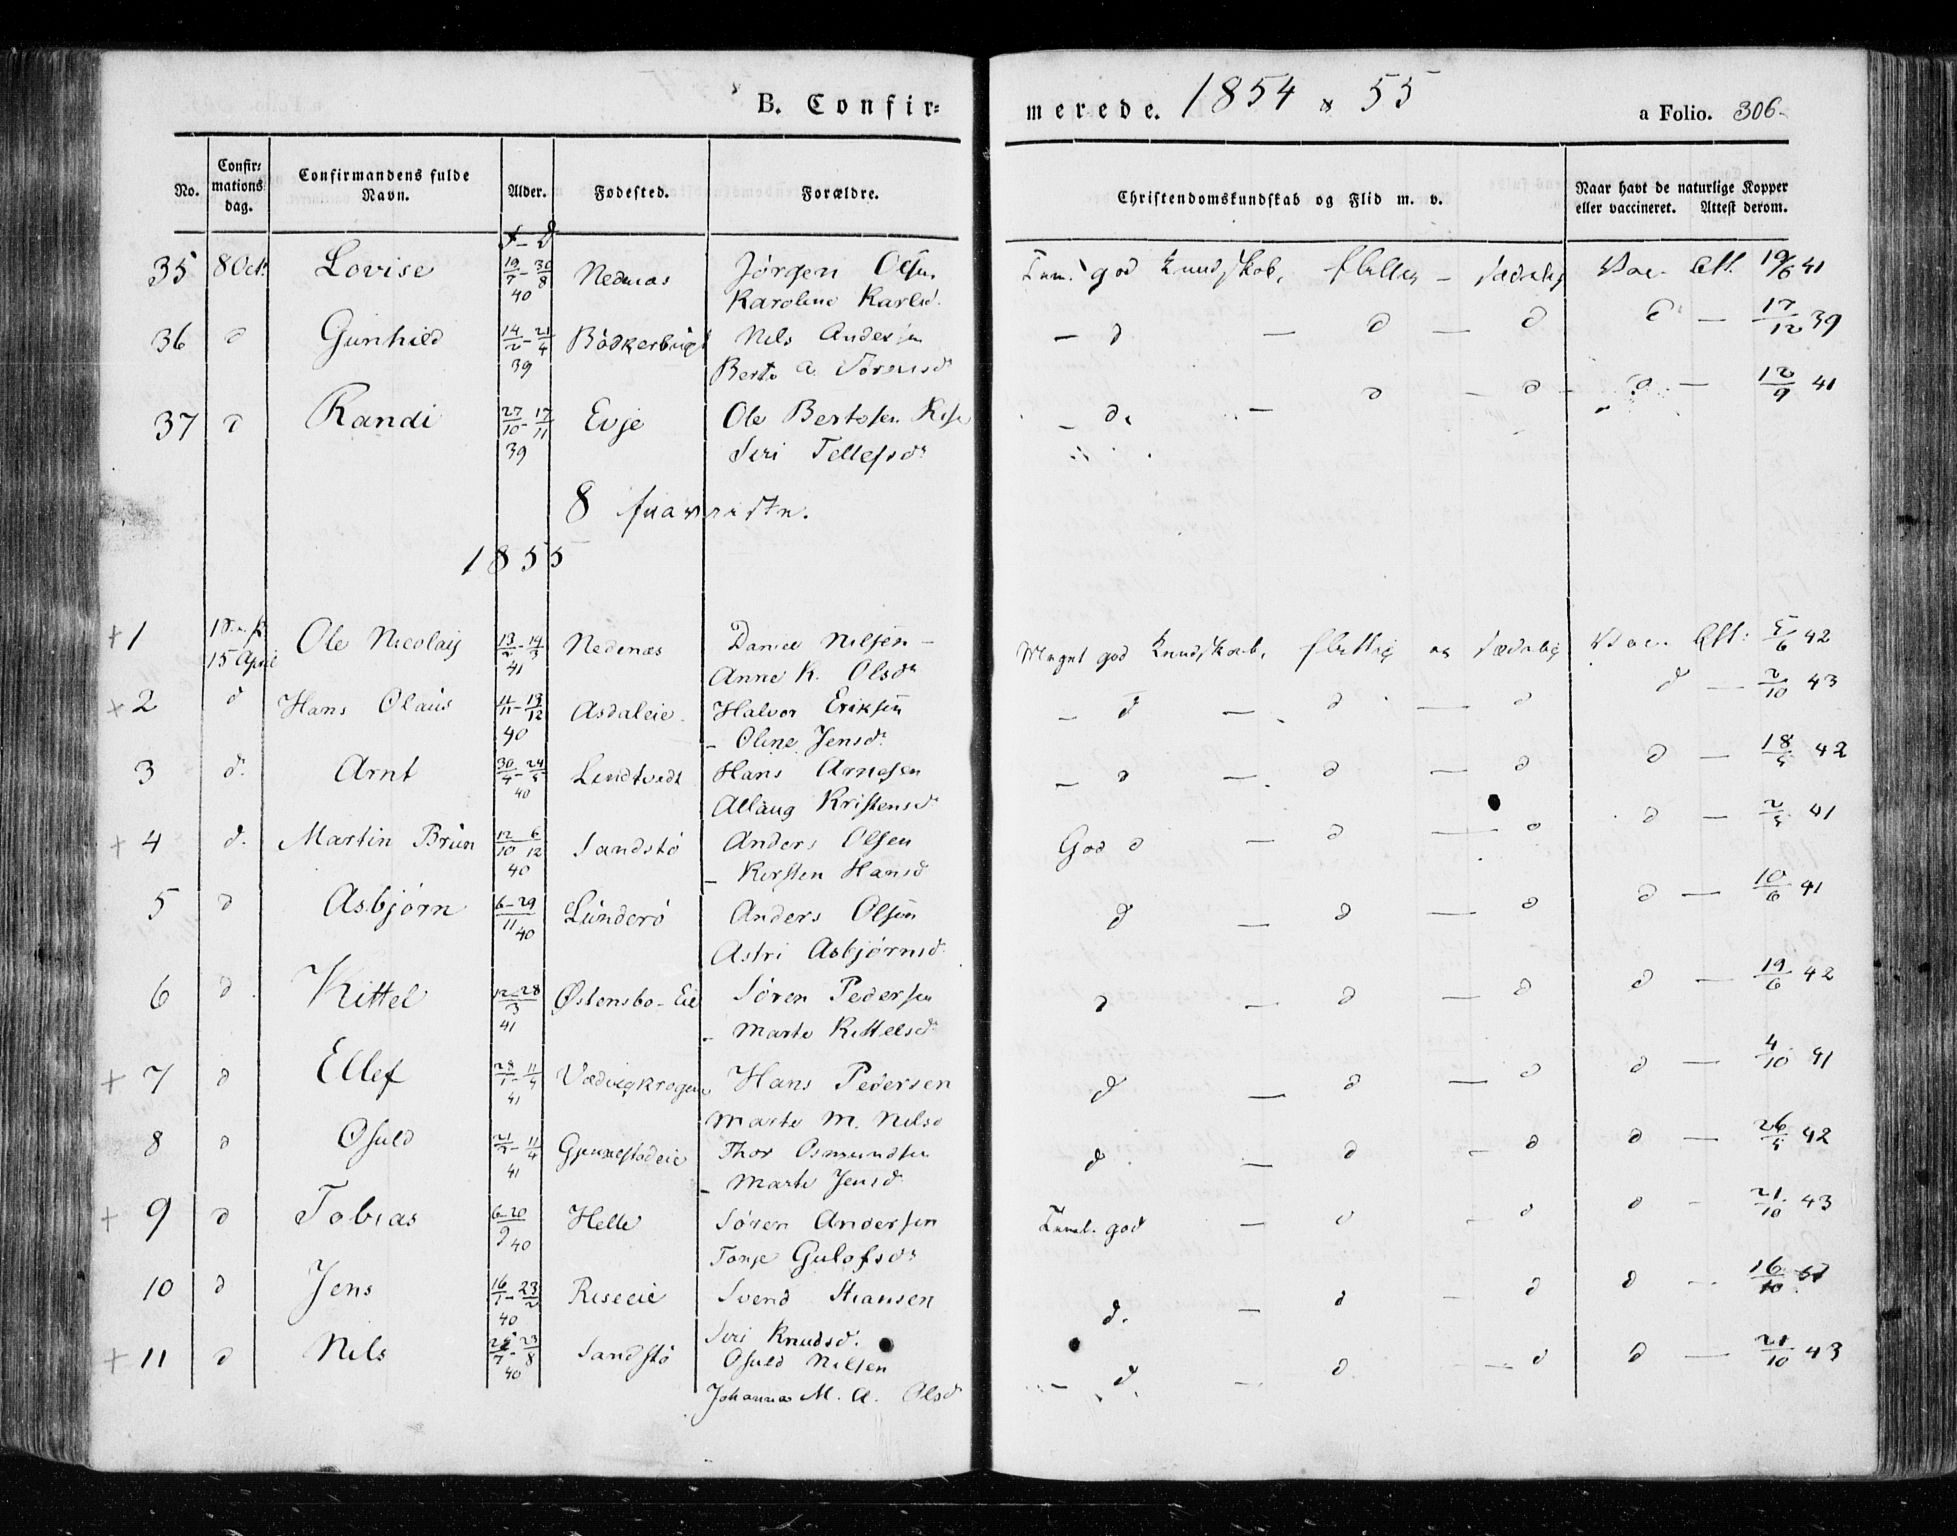 B. Confirmerede. 1854 & 55 a Folio. 306.
No. Confirmations dag. Confirmandens fulde Navn. Alder. Fødested. Forældre. Christendomskundskab og Flid m. v. Naar havt de naturlige Kopper eller vaccineret. Attest derom.
f - d
35 8 Oct. Lovise 19/7 - 30/8 40 Nedenas Jörgen Olsen god Kundskab, flittig - sædelig Vac. Att. 19/6 41
Karoline Karlsd.
36 d Gunhild 14/2 - 21/4 39 Bödkerbugt Nils Andersen - d - d - d d - 17/12 39
Berte A. Sörensd.
37 d Randi 27/10 - 17/11 39 Evje Ole Bertosen - d. - d - d - d - 12/9 41
Siri Tellefsdr
8
1855
+ 1 15 April Ole Nicolay 13/2 - 14/3 41 Nedenæs Daniel Nilsen - Meget god Kundskab, flittig og sædelig Vac. Att. 5/6 42
Anne K. Olsdr
+ 2 d Hans Olaus 11/11 - 13/12 40 Asdaleie Halvor Eriksen - d - d - d d - 2/10 43
- Oline Jensdr.
3 d. Arnt 30/4 - 24/5 40 Lindtvedt Hans Arnesen - d - d - d d - 18/5 42
Allaug Kristensd
+ 4 d. Martin Brün 12/10 6/12 40 Sandstö Anders Olsen God d - d - d d - 2/5 41
- Kirsten Hansd
5 d Asbjörn 6-29/11 40 Lunderö Anders Olsen d - d - d d - 10/6 41
Astri Asbjörnsd.
6 d. Kittel 12-28/3 41 Østensbo-Eie Sören Pedersen d - d - d d - 19/6 42
- Marte Kittelsd.
+ 7 d Ellef 28/1 - 11/4 41 Hans Pedersen d - d - d d - 4/10 41
Marte M. Nilsd
8 d Osuld 21/2 - 11/4 41 Thor Osmundsen d - d - d d - 26/5 42
- Marte Jensd.
+ 9 d Tobias 6-20/9 40 Helle Sören Andersen god - d - d d - 21/10 43
Tonje Gulofsdr
10 d Jens 16/1 - 23/2 40 Riseeie Svend Stiansen d. - d - d d - 16/10
Siri Knudsd.
+ 11 d Nils 23/8 40 Sandstö Osuld Nilsen - d - d - d d - 21/10 43
Johanna M. A. Olsd